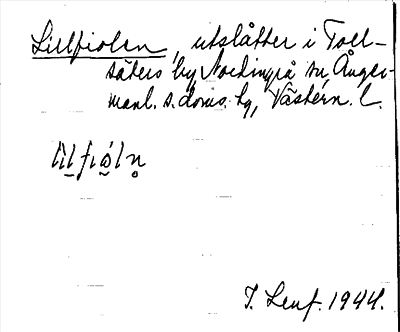 Lillfiolen, utslåtter i Toll-
säters by Nordingrå sn, Ånger-
manl. s. doms. hg, Västérn. l.
lìlfıǻlṇ
J. Lenf. 1944.